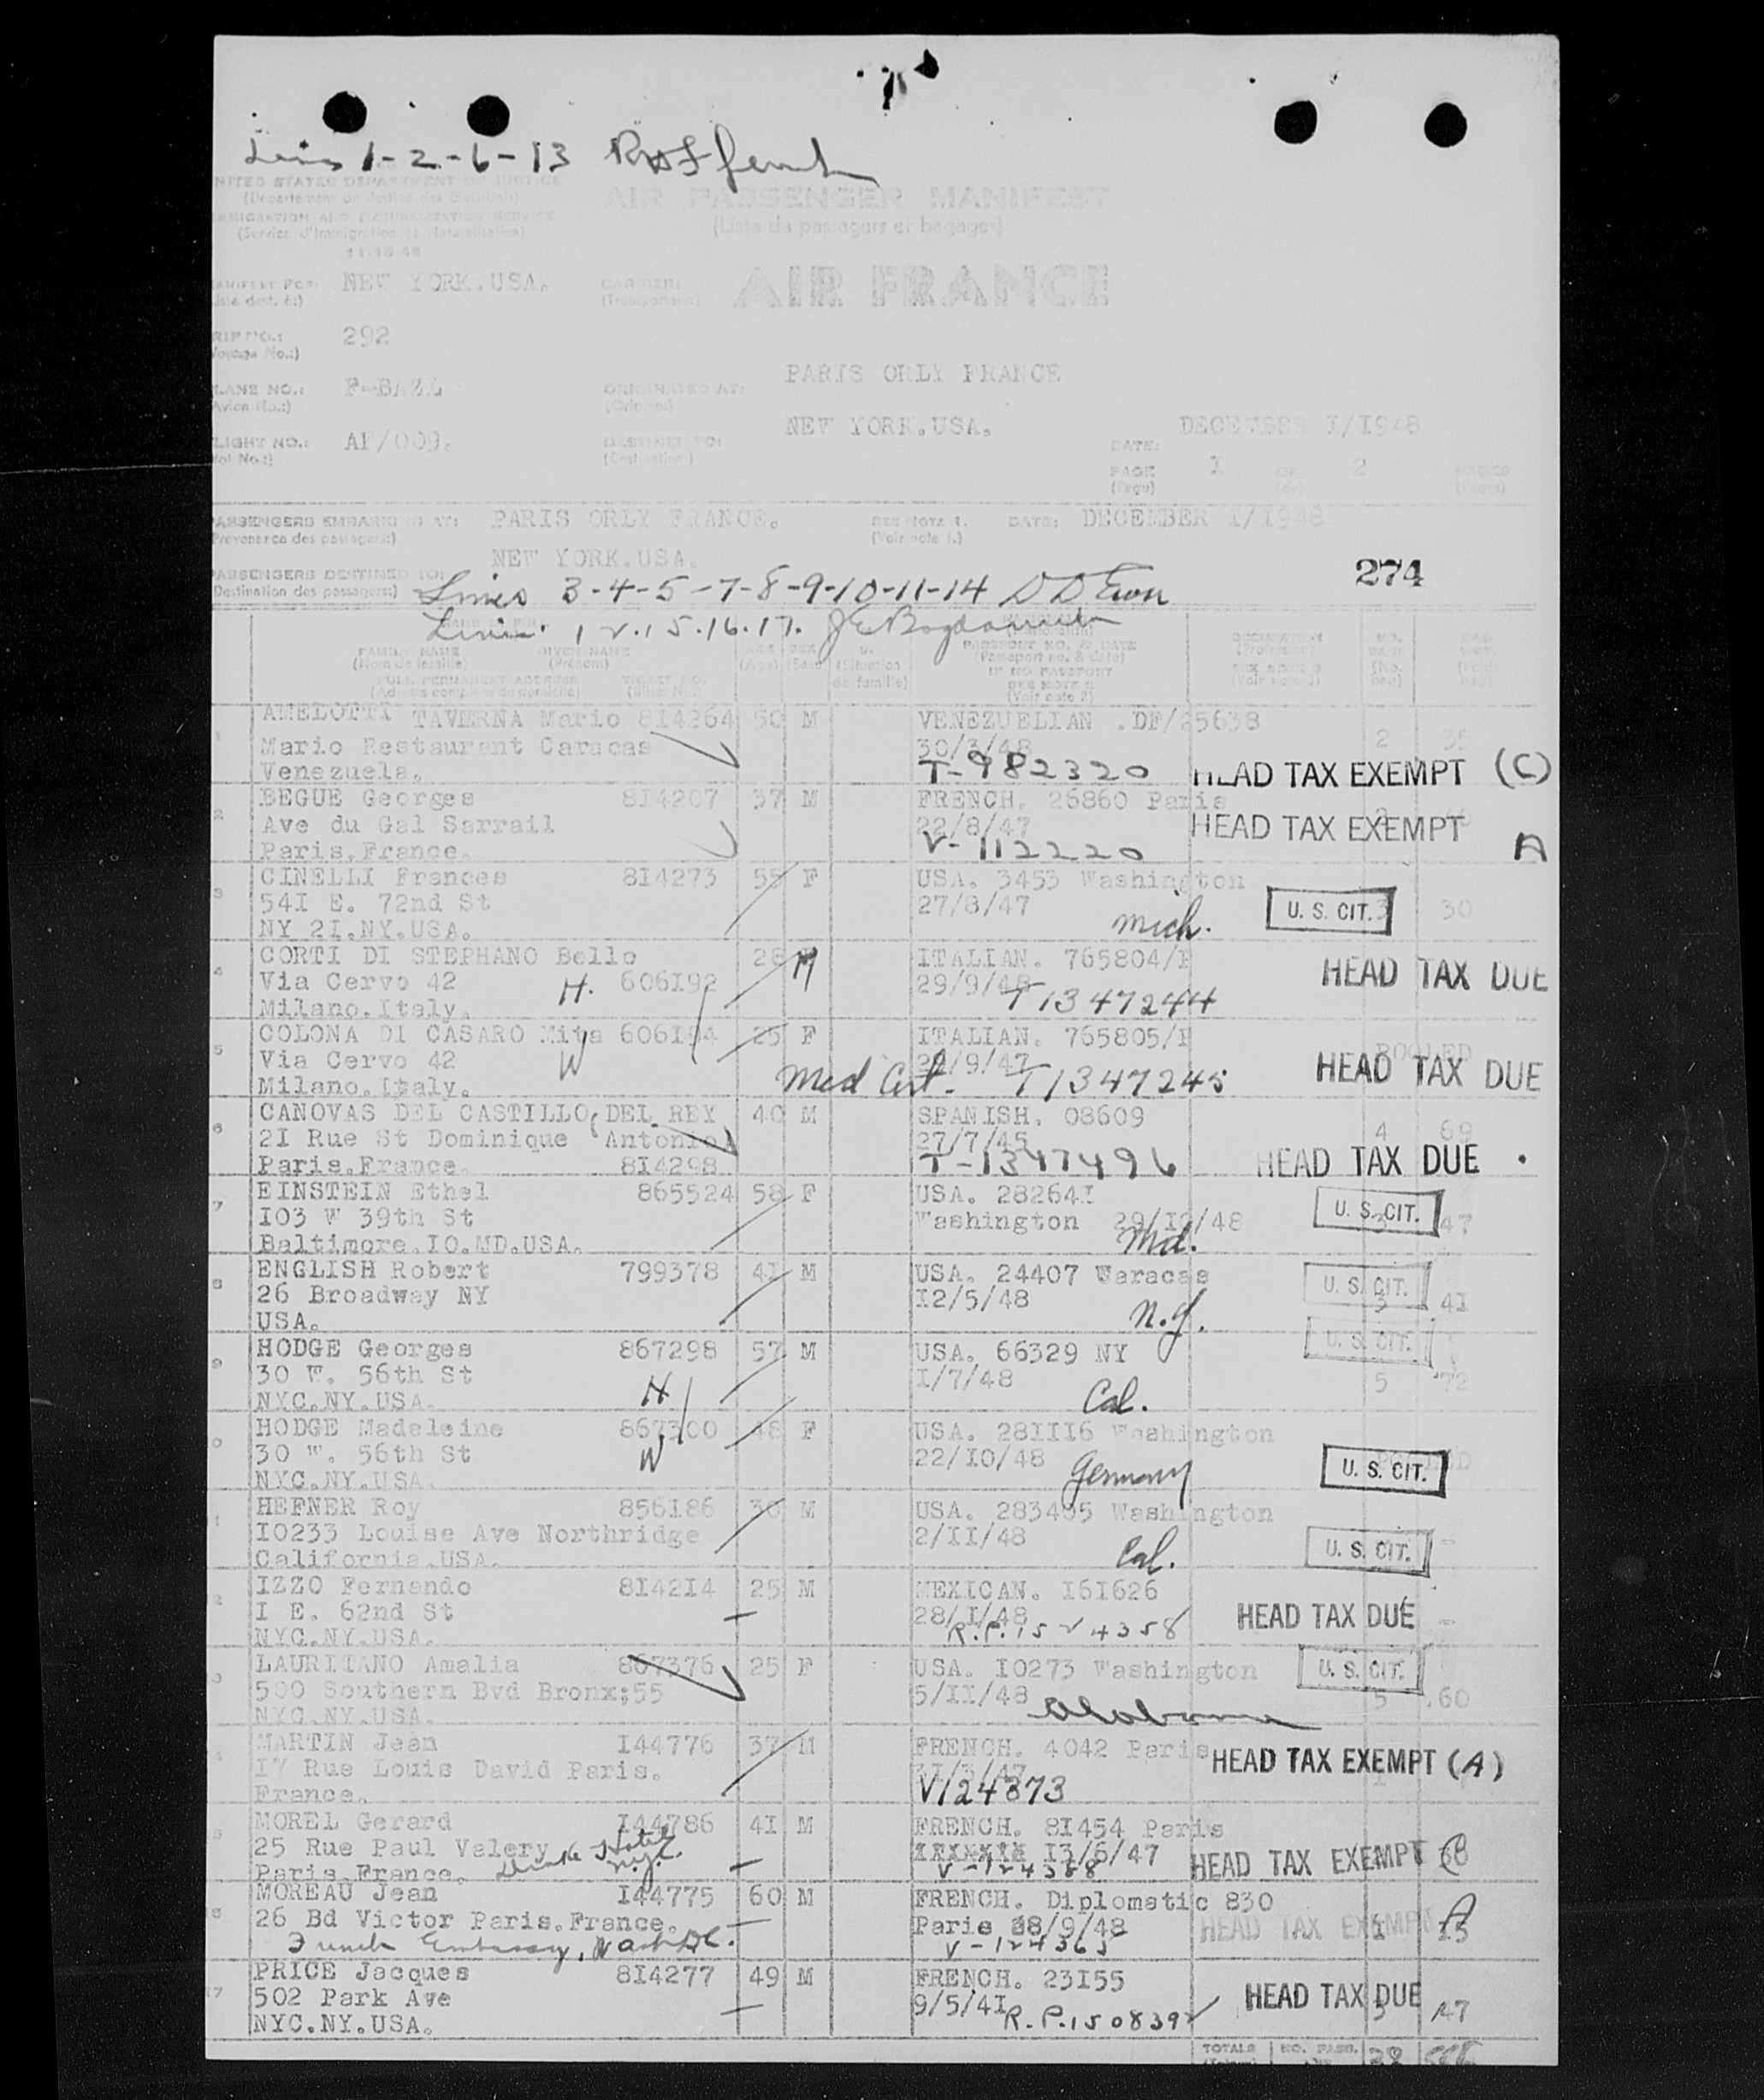 1-2-6-13
UNITED STATES DEPARTMENT OF JUSTICE
AIR PASSENGER MANIFEST
(Liste de passagers et bagages)
(Service d'Immigration et Naturalisation)
NEW YORK.USA.
AIR FRANCE
292
(Voyage No.:)
PARIS ORLY FRANCE
PLANE NO.: F-BAZL ORIGINATED AT:
(Avion No.:)
NEW YORK.USA. DECEMBER I/I948
FLIGHT NO.: AF/009. DESTINED TO: DATE:
PAGE I OF 2 PAGES
PASSENGERS EMBARKING AT: PARIS ORLY FRANCE. SEE NOTE 1. DATE: DECEMBER I/I948
(Provenance des passagers:) (Voir note 1.)
NEW YORK.USA.
274
PASSENGERS DESTINED TO:
(Destination des passagers:) Lines 3-4-5-7-8-9-10-11-14
12.15.16.17.
FAMILY NAME GIVEN NAME PASSPORT NO. & DATE
(Nom de famille) (Prénom) (Age) (Sexe) (Situation de famille) (Passeport no. & date)
IF NO PASSPORT
SEE NOTE 2
(Voir note 2)
AMELOTTI TAVERNA Mario 814264 50 M VENEZUELIAN .DF/25638
Mario Restaurant Caracas 30/3/48 2 35
Venezuela. T-982320 HEAD TAX EXEMPT (C)
BEGUE Georges 814207 37 M FRENCH. 26860 Paris
Ave du Gal Sarrail 22/8/47 HEAD TAX EXEMPT A
Paris.France. V-112220
CINELLI Frances 814273 55 F USA. 3453 Washington
54I E. 72nd St 27/8/47 U. S. CIT. 3 30
NY 2I.NY.USA. Mich.
CORTI DI STEPHANO Bello 28 M ITALIAN. 765804/P
Via Cervo 42 H. 606I92 29/9/48 HEAD TAX DUE
Milano.Italy. T1347244
COLONA DI CASARO Mita 606194 25 F ITALIAN. 765805/P
Via Cervo 42 W 29/9/47 POOLED
Milano.Italy. Med Cert. T1347245 HEAD TAX DUE
CANOVAS DEL CASTILLO (DEL REY 40 M SPANISH. 08609
2I Rue St Dominique Antonio) 27/7/45 4 69
Paris.France. 814298 T-1347496 HEAD TAX DUE
EINSTEIN Ethel 865524 58 F USA. 28264I
I03 W 39th St Washington 29/10/48 U. S. CIT. 3 47
Baltimore.IO.MD.USA. Md.
ENGLISH Robert 799378 4I M USA. 24407 Waracas
26 Broadway NY I2/5/48 U. S. CIT. 3 4I
USA. N.J.
HODGE Georges 867298 57 M USA. 66329 NY U. S. CIT.
30 W. 56th St I/7/48 5 72
NYC.NY.USA. H Cal.
HODGE Madeleine 867300 48 F USA. 28III6 Washington
30 W. 56th St W 22/I0/48 Germany U. S. CIT.
NYC.NY.USA.
HEFNER Roy 856I86 M USA. 283485 Washington
I0233 Louise Ave Northridge 2/II/48 U. S. CIT.
California.USA. Cal.
IZZO Fernando 8I42I4 25 M MEXICAN. I6I626
I E. 62nd St 28/I/48 HEAD TAX DUE
NYC.NY.USA. R.P.1524358
LAURITANO Amalia 867376 25 F USA. I0273 Washington U. S. CIT.
500 Southern Bvd Bronx;55 5/II/48 5 .60
NYC.NY.USA. Alabama
MARTIN Jean I44776 37 M FRENCH. 4042 Paris
I7 Rue Louis David Paris. 3I/3/47 HEAD TAX EXEMPT (A)
France. V124373
MOREL Gerard I44786 4I M FRENCH. 8I454 Paris
25 Rue Paul Valery Hotel I3/6/47
Paris.France. N.Y.C. V-124368 HEAD TAX EXEMPT
MOREAU Jean I44775 60 M FRENCH. Diplomatic 830
26 Bd Victor Paris.France. Paris 28/9/48 HEAD TAX EXEMPT A
French Embassy, Wash DC. V-124365
PRICE Jacques 8I4277 49 M FRENCH. 23I55
502 Park Ave 9/5/4I HEAD TAX DUE 3 47
NYC.NY.USA. R.P.1508392
TOTALS NO. PASS.